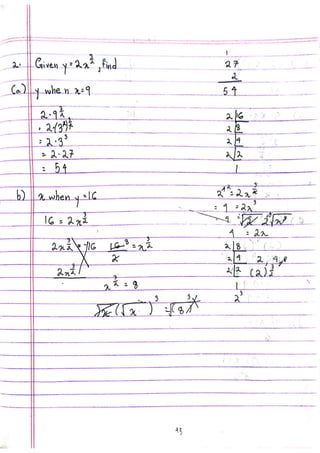 2. Given y = 2x^{3/2}, find
(a) y when x=9
2·9^{3/2}
= 2(3²)^{3/2}
= 2·3³
= 2·27
= 54
1
27
2
54
2|16
2|8
2|4
2|2
1
b) x when y=16
16 = 2x^{3/2}
2x^{3/2} 16
2x^{3/2}
16 8 = x^{3/2}
2
x^{3/2} = 8
(√x)³ = 8
= 4 = 2x³
4 = 2x
2|8
2|4
2|2
1
2³